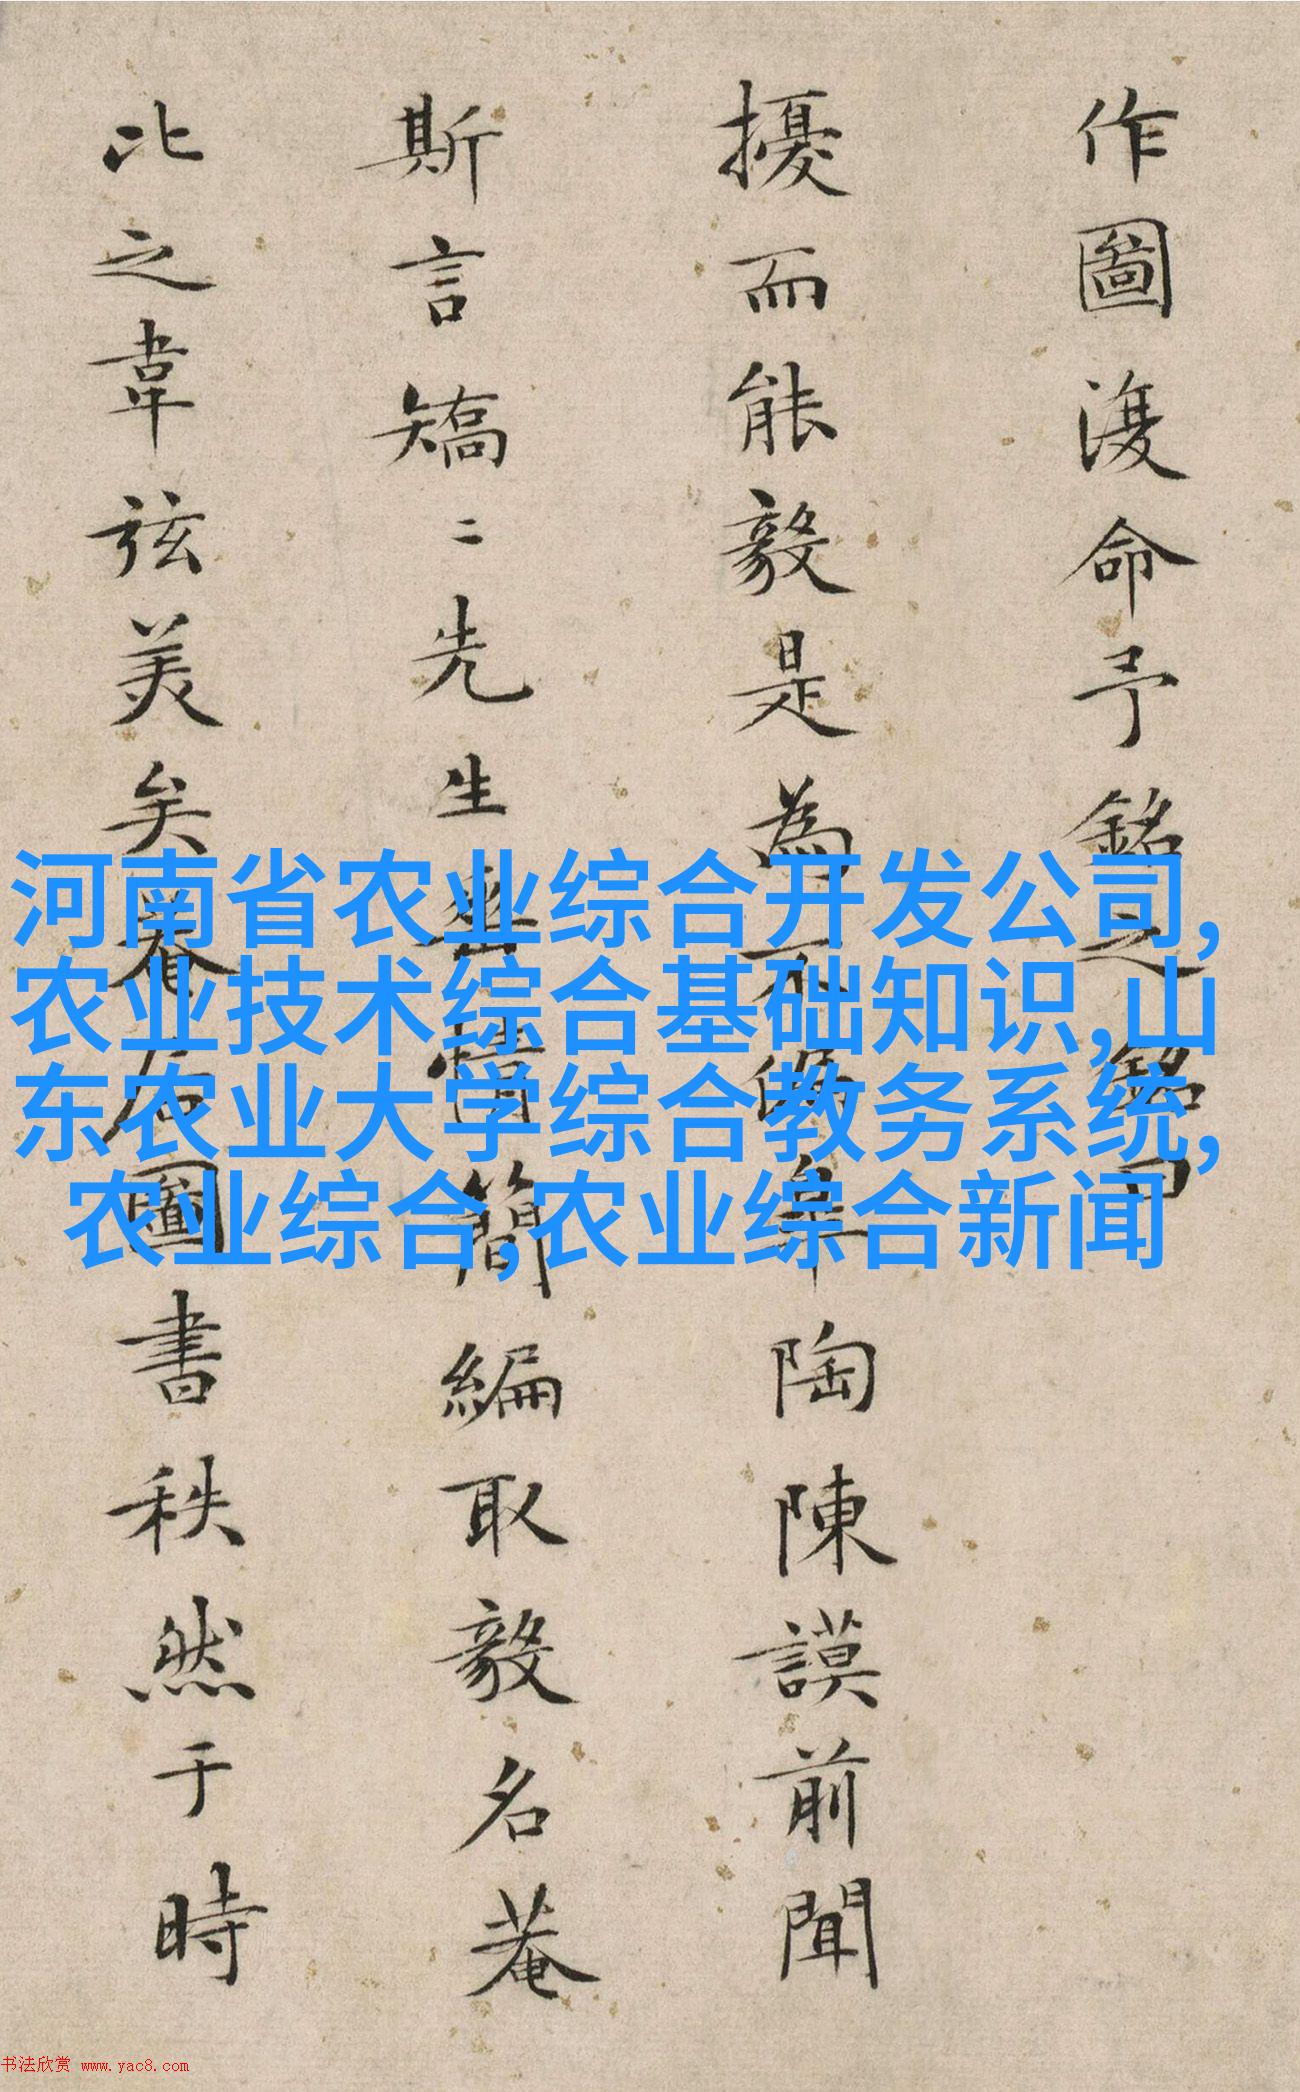 作圖復命予銘之銘曰
擾而能毅是為不偽皋陶陳謨前聞
斯言矯二先生興情簡編取毅名菴
比之韋弦美矣菴居圖書秩然于時
河南省农业综合开发公司,
农业技术综合基础知识,山
东农业大学综合教务系统,
农业综合,农业综合新闻
书法欣赏 www.yac8.com